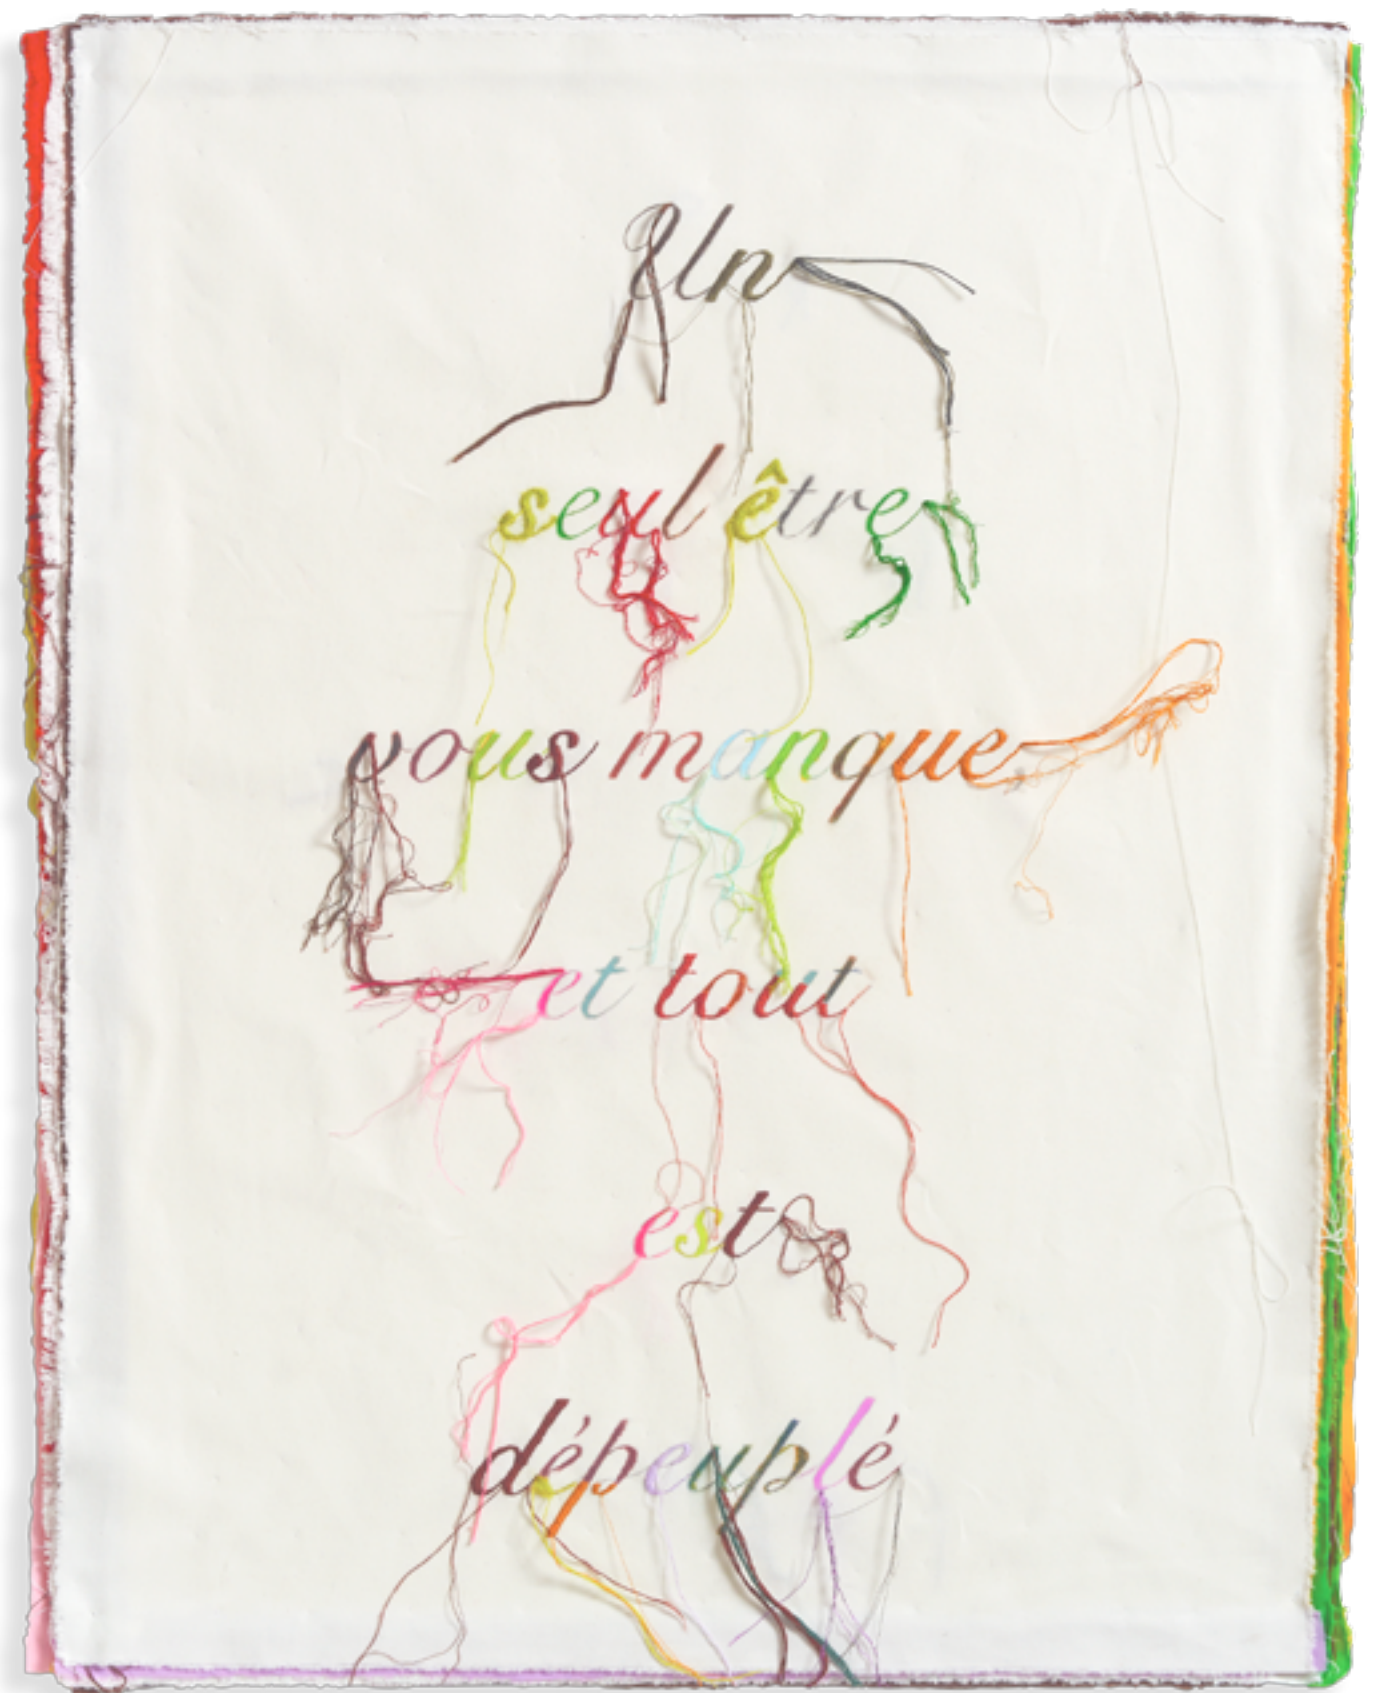 Un
seul être
vous manque
et tout
est
dépeuplé